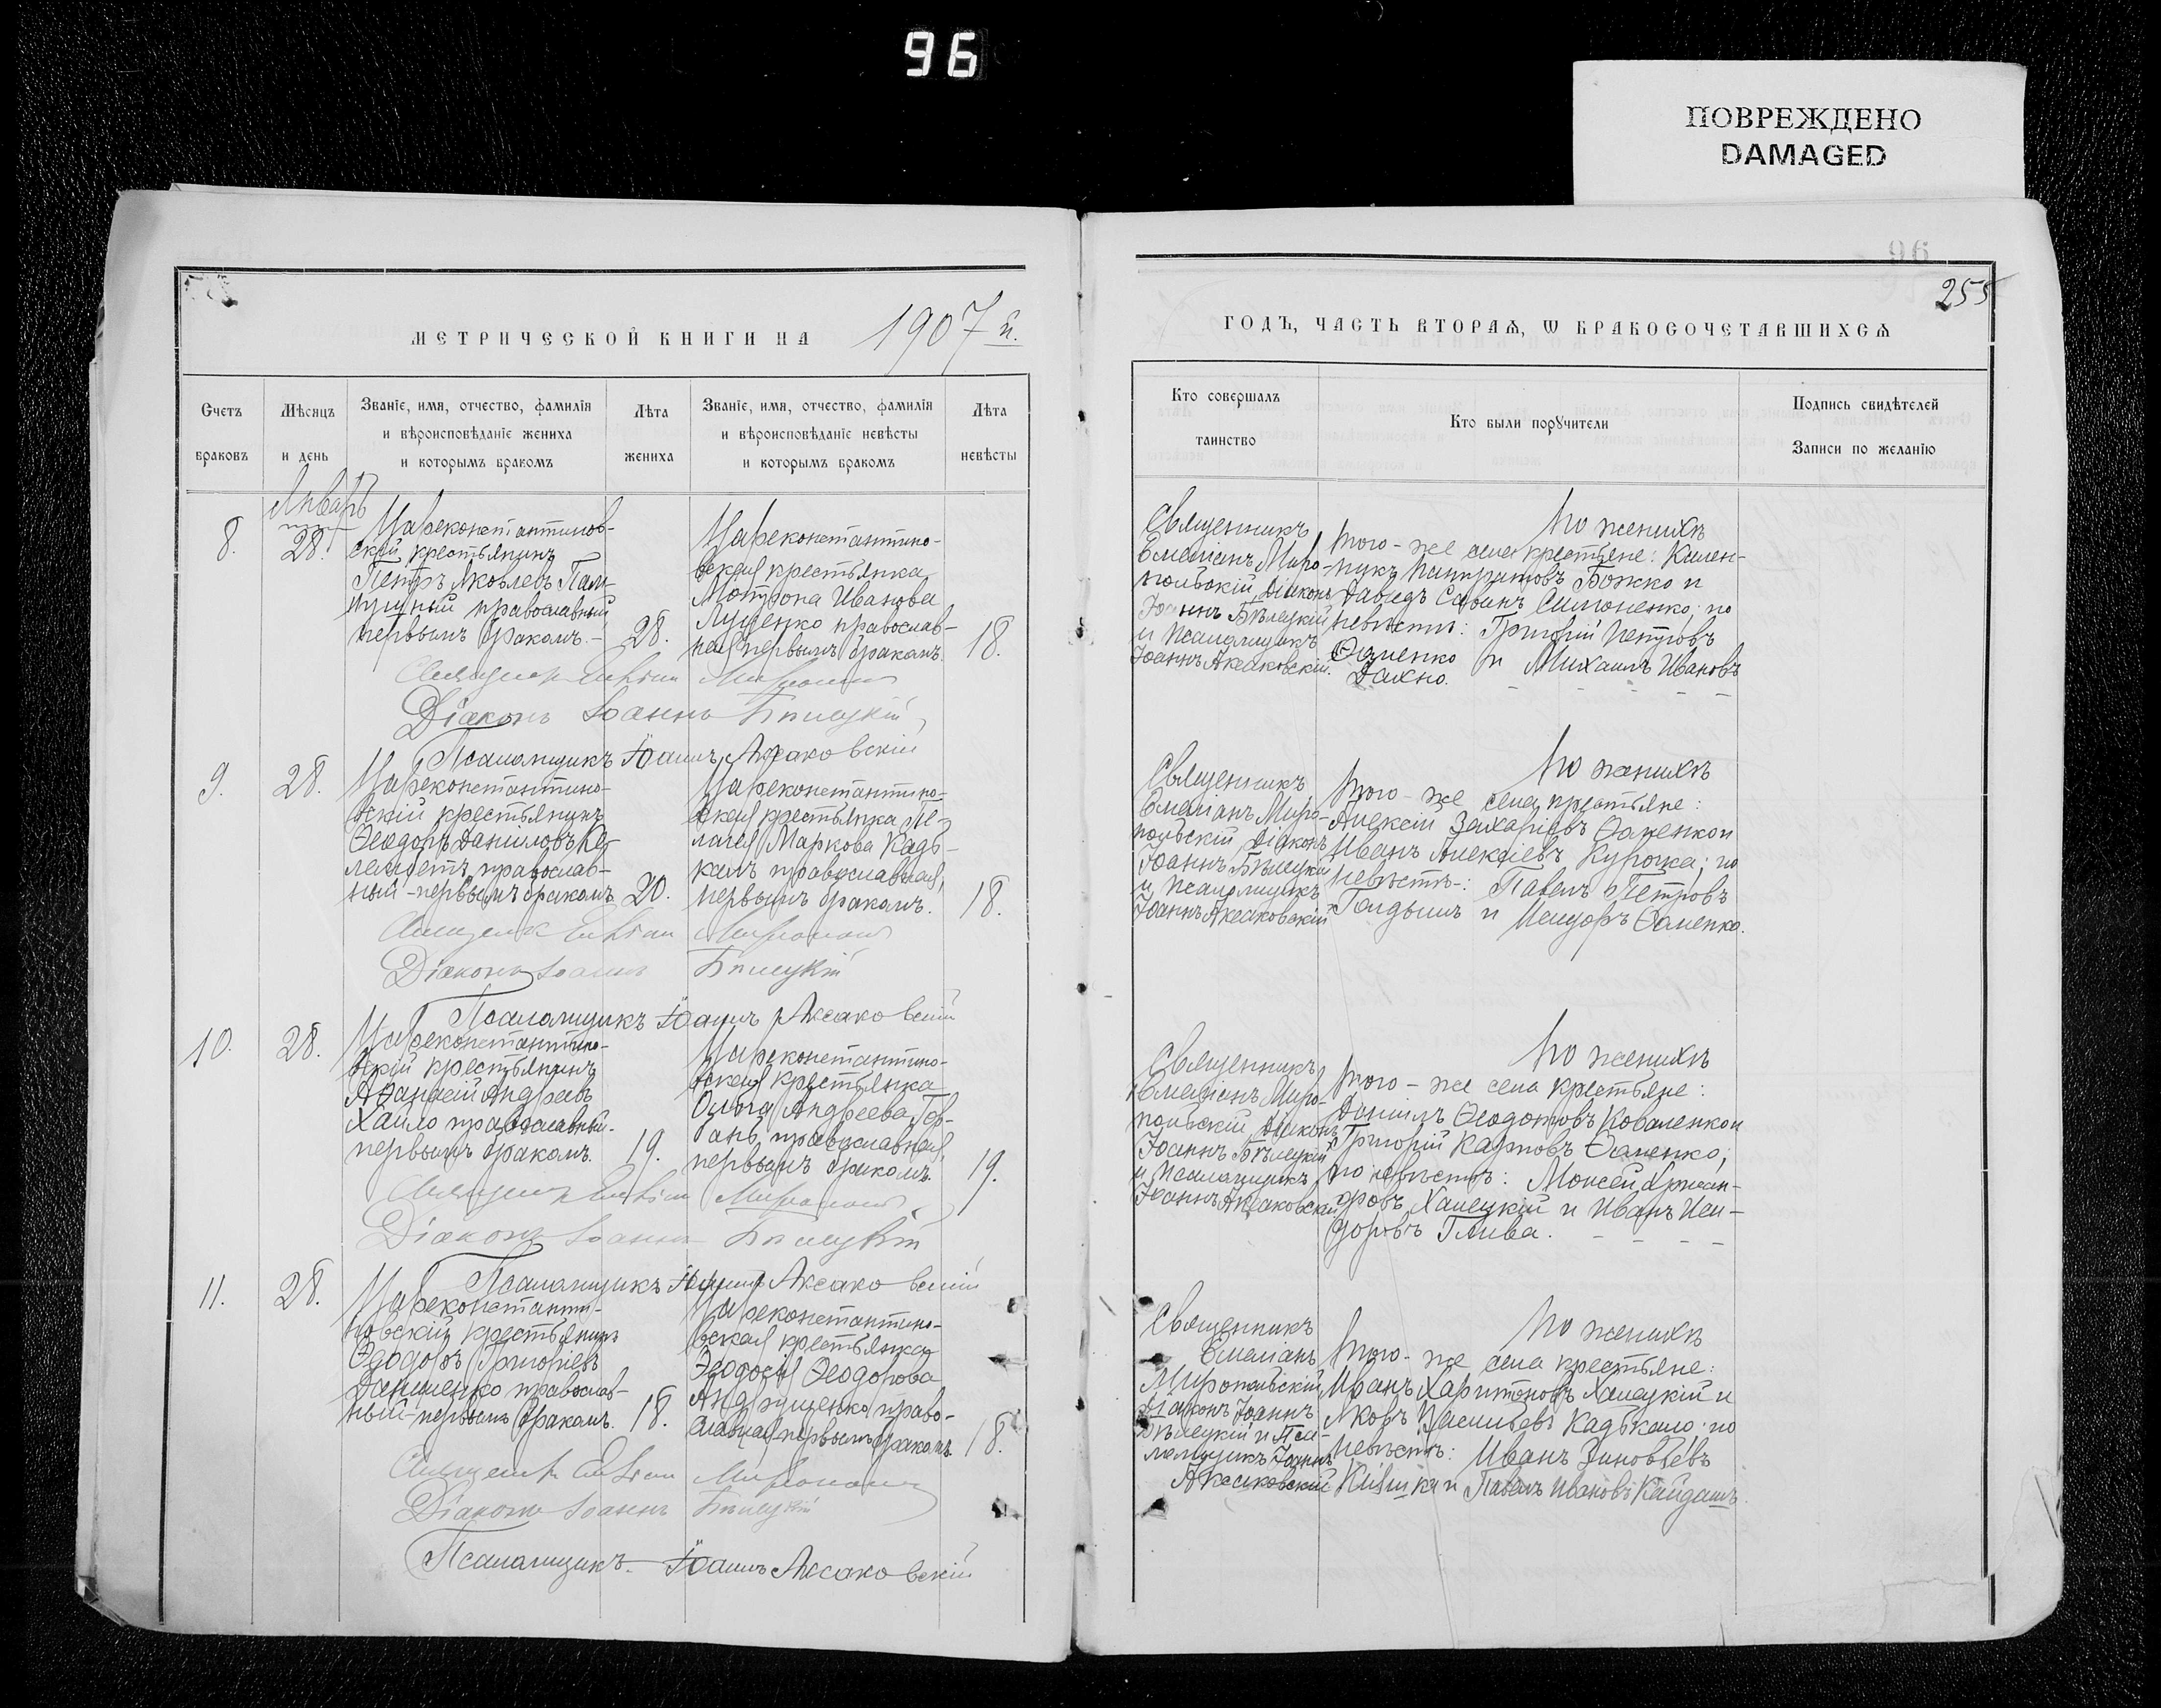 96
ПОВРЕЖДЕНО
DAMAGED
96
255
МЕТРИЧЕСКОЙ КНИГИ НА 1907й.
ГОДЪ, ЧАСТЬ ВТОРАЯ, Ѡ БРАКОСОЧЕТАВШИХСЯ
Счетъ
браковъ
Мѣсяцъ
и день
Званїе, имя, отчество, фамилїя
и вѣроисповѣданїе жениха
и которымъ бракомъ
Лѣта
жениха
Званїе, имя, отчество, фамилїя
и вѣроисповѣданїе невѣсты
и которымъ бракомъ
Лѣта
невѣсты
Кто совершалъ
таинство
Кто были порꙋчители
Подпись свидѣтелей
Записи по желанїю
Январь
8.
28.
Цареконстантинов-
скій крестьянинъ
Петръ Яковлевъ
православный
первымъ бракомъ.-
28.
Цареконстантино-
вская крестьянка
Мотрона Иванова
Луценко православ-
ная первымъ бракомъ.
18.
Священникъ
Емеліанъ Миро-
польскій, діаконъ
Іоаннъ Бѣлецкій
и псаломщикъ
Іоаннъ Аксаковскій.
По женихѣ
того-же села крестьяне: Калин-
никъ Панкратовъ Божко и
Давидъ Саввинъ Симоненко; по
невѣстѣ: Григорій Петровъ
и Михаилъ Ивановъ
Дахно.
Діаконъ Іоаннъ Бѣлецкій
Псаломщикъ Іоаннъ Аксаковскій
9.
28.
Цареконстантино-
вскій крестьянинъ
Ѳеодоръ Даніиловъ
православ-
ный-первымъ бракомъ
20.
Цареконстантино-
вская крестьянка Пе-
лагея Маркова Кадь-
калъ православная,
первымъ бракомъ.
18.
Священникъ
Емеліанъ Миро-
польскій, діаконъ
Іоаннъ Бѣлецкій
и псаломщикъ
Іоаннъ Аксаковскій
По женихѣ
того-же села крестьяне:
Алексій Захаріевъ Ѳаненко и
Иванъ Алексіевъ Курочка; по
невѣстѣ: Павелъ Петровъ
и Исидоръ Ѳаненко.
Діаконъ Іоаннъ Бѣлецкій
Псаломщикъ Іоаннъ Аксаковскій
10.
28.
Цареконстантино-
вскій крестьянинъ
Аѳанасій Андреевъ
Хайло православный-
первымъ бракомъ.
19.
Цареконстантино-
вская крестьянка
Ольга Андреева
православная,
первымъ бракомъ.
19.
Священникъ
Емеліанъ Миро-
польскій, діаконъ
Іоаннъ Бѣлецкій
и псаломщикъ
Іоаннъ Аксаковскій
По женихѣ
того-же села крестьяне:
Даніилъ Ѳеодотовъ Коваленко и
Григорій Карповъ Ѳаненко;
по невѣстѣ: Моисей
Халецкій и Иванъ Иси-
доровъ Глива.
Діаконъ Іоаннъ Бѣлецкій
Псаломщикъ Іоаннъ Аксаковскій
11.
28.
Цареконстанти-
новскій крестьянинъ
Ѳеодоръ Григоріевъ
Даниленко православ-
ный-первымъ бракомъ.
18.
Цареконстантино-
вская крестьянка
Ѳеодосія Ѳеодорова
Андрущенко право-
славная первымъ бракомъ.
18.
Священникъ
Емеліанъ
Миропольскій,
діаконъ Іоаннъ
Бѣлецкій и пса-
ломщикъ Іоаннъ
Аксаковскій
По женихѣ
того-же села крестьяне:
Иванъ Харитоновъ Халецкій и
Яковъ Васильевъ Кадькало; по
невѣстѣ: Иванъ Зиновьевъ
и Павелъ Ивановъ Кайдашъ.
Діаконъ Іоаннъ Бѣлецкій
Псаломщикъ Іоаннъ Аксаковскій